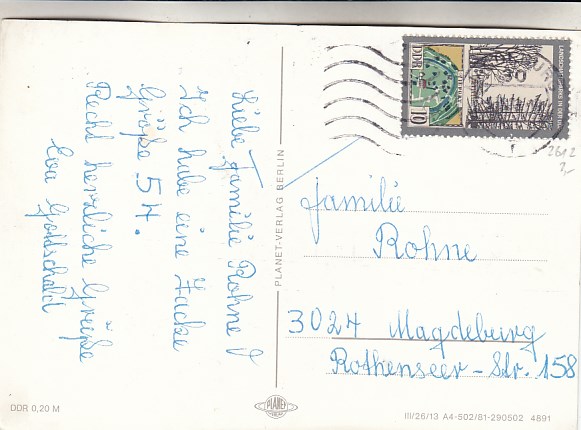 Liebe Familie Rohne!
Ich habe eine Jacke
Größe 54.
Recht herzliche Grüße
Eva Gottschald
PLANET-VERLAG BERLIN
DDR
10
30
2612
Familie
Rohne
3024 Magdeburg
Rothenseer-Str. 158
DDR 0,20 M
PLANET
III/26/13 A4-502/81-290502 4891